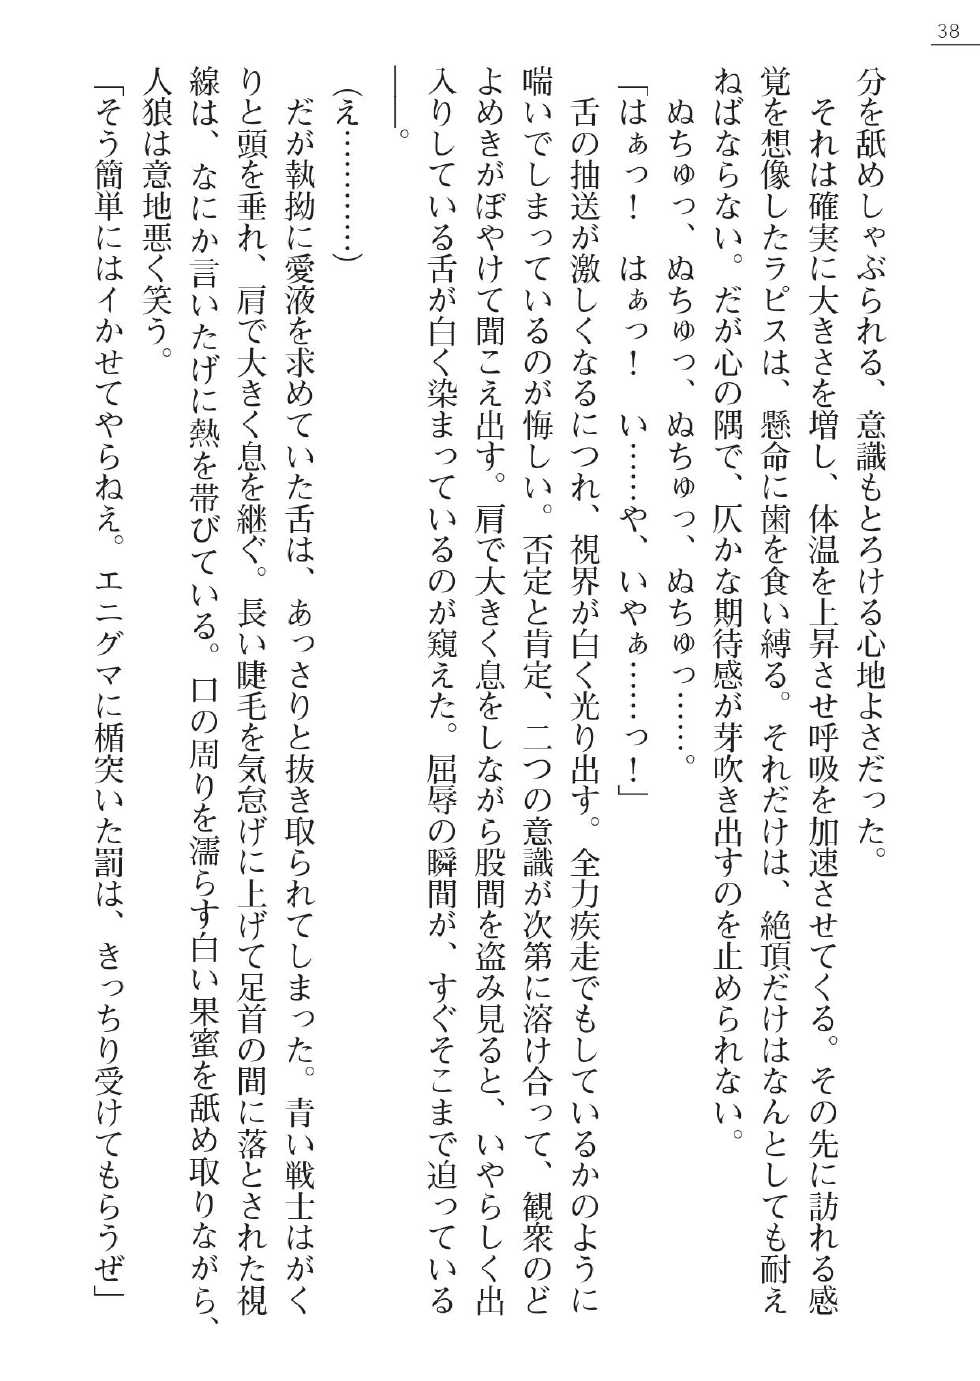 38
分を舐めしゃぶられる、意識もとろける心地よさだった。
それは確実に大きさを増し、体温を上昇させ呼吸を加速させてくる。その先に訪れる感
覚を想像したラピスは、懸命に歯を食い縛る。それだけは、絶頂だけはなんとしても耐え
ねばならない。だが心の隅で、仄かな期待感が芽吹き出すのを止められない。
ぬちゅっ、ぬちゅっ、ぬちゅっ、ぬちゅっ……。
「はぁっ！　はぁっ！　い……や、いやぁ……っ！」
舌の抽送が激しくなるにつれ、視界が白く光り出す。全力疾走でもしているかのように
喘いでしまっているのが悔しい。否定と肯定、二つの意識が次第に溶け合って、観衆のど
よめきがぼやけて聞こえ出す。肩で大きく息をしながら股間を盗み見ると、いやらしく出
入りしている舌が白く染まっているのが窺えた。屈辱の瞬間が、すぐそこまで迫っている
――。
（え…………）
だが執拗に愛液を求めていた舌は、あっさりと抜き取られてしまった。青い戦士はがく
りと頭を垂れ、肩で大きく息を継ぐ。長い睫毛を気怠げに上げて足首の間に落とされた視
線は、なにか言いたげに熱を帯びている。口の周りを濡らす白い果蜜を舐め取りながら、
人狼は意地悪く笑う。
「そう簡単にはイかせてやらねえ。エニグマに楯突いた罰は、きっちり受けてもらうぜ」